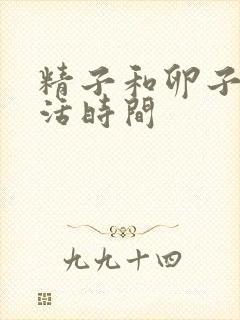 精子和卵子
活時間
九九十四